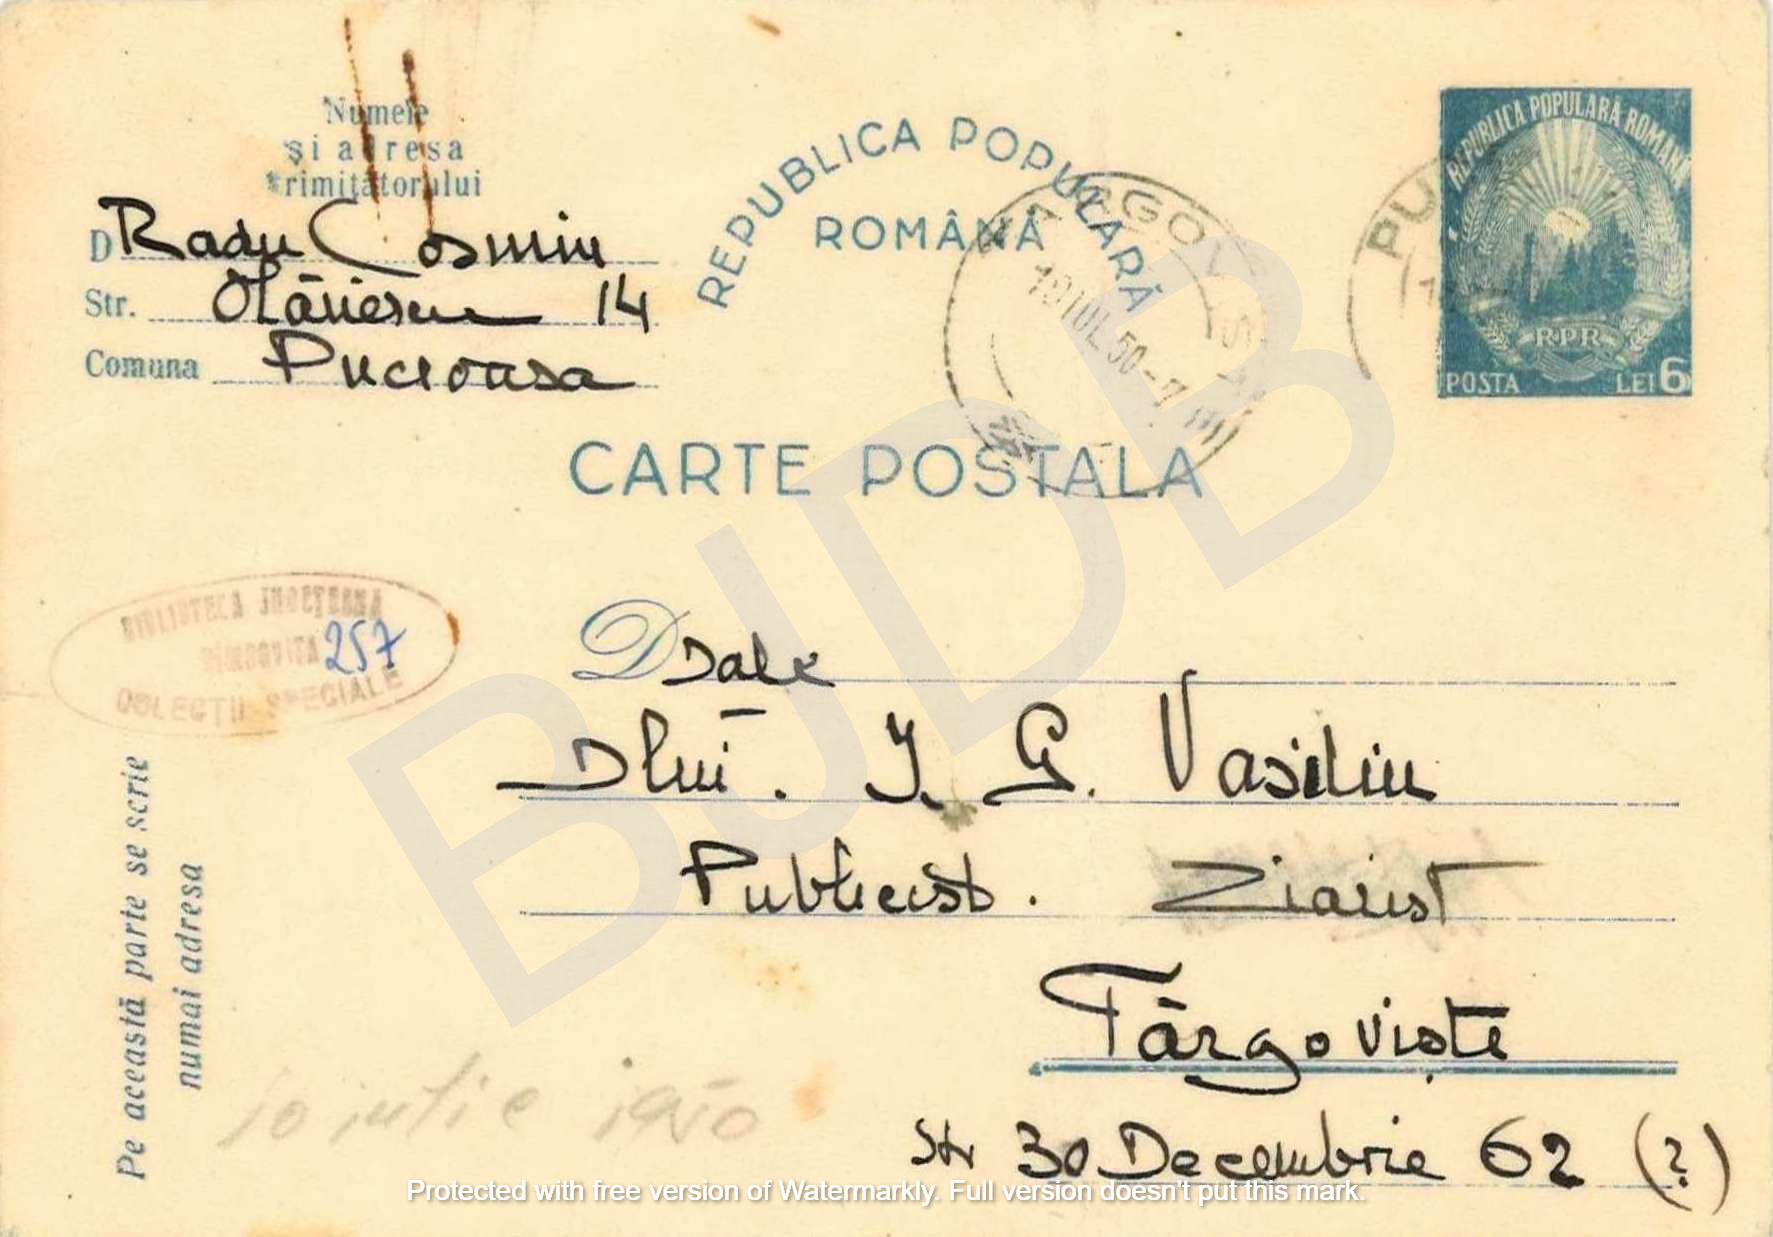 Numele
și adresa
trimițătorului
D Radu Cosmin
Str. Olănescu 14
Comuna Pucioasa
REPUBLICA POPULARĂ
ROMÂNĂ
TARGOVIS
10 IUL 50 - 7
PU
REPUBLICA POPULARĂ ROMÂNĂ
RPR
POSTA LEI 6
CARTE POSTALA
BIBLIOTECA JUDEȚEANĂ
DÎMBOVIȚA 257
COLECȚII SPECIALE
D Sale
Dlui. I. G. Vasiliu
Publicist. Ziarist
Târgoviște
Str 30 Decembrie 62 (?)
Pe această parte se scrie
numai adresa
10 iulie 1950
BJDB
Protected with free version of Watermarkly. Full version doesn't put this mark.